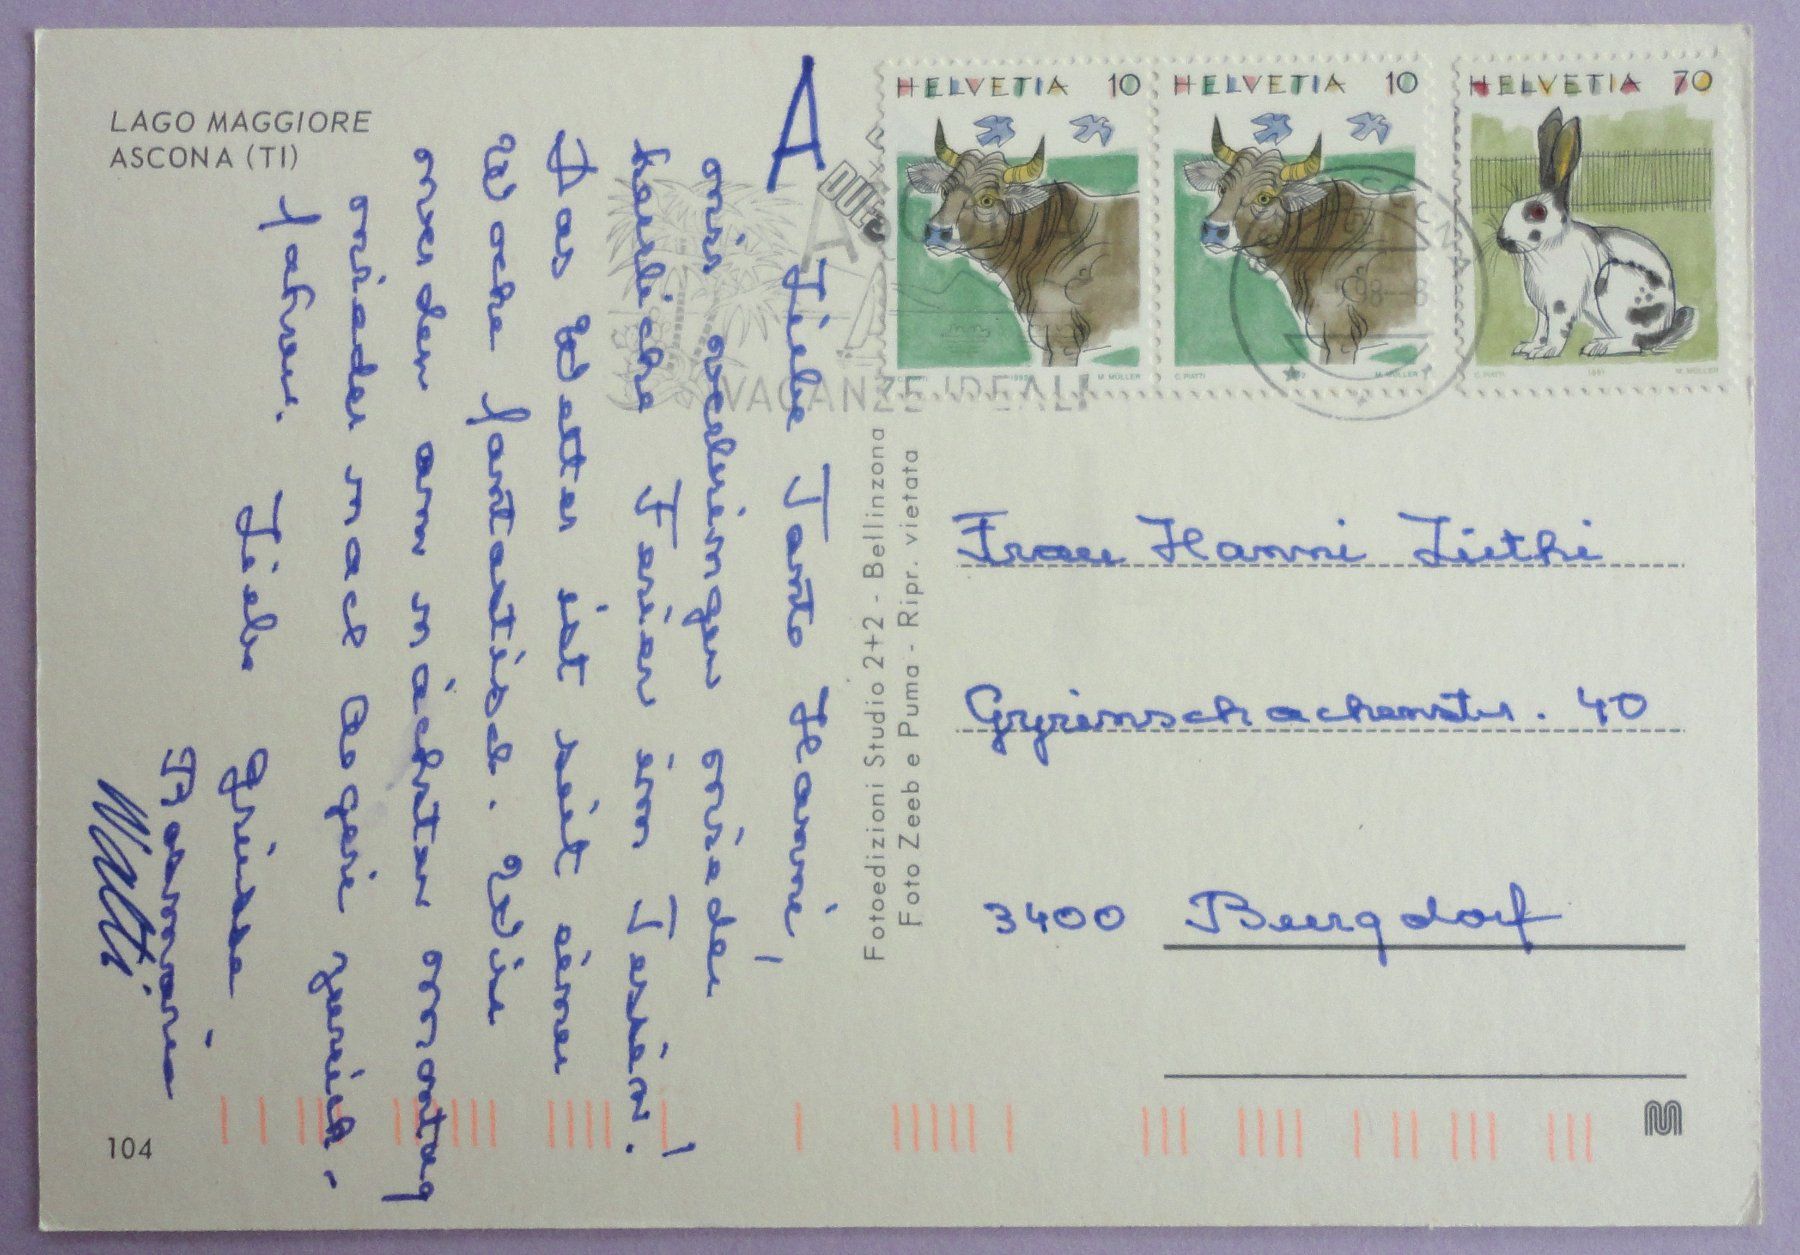 LAGO MAGGIORE
ASCONA (TI)
A
Liebe Tante Hanni,
wir verbringen wieder
herrliche Ferien im Tessin!
Das Wetter ist seit einer
Woche fantastisch. Wir
werden am nächsten Montag
wieder nach Aegeri zurück-
fahren.
Liebe Grüsse
Rosmarie
Walti
104
Fotoedizioni Studio 2+2 - Bellinzona
Foto Zeeb e Puma - Ripr. vietata
HELVETIA 10
C. PIATTI 1992 M. MÜLLER
HELVETIA 10
C. PIATTI M. MÜLLER
HELVETIA 70
C. PIATTI 1991 M. MÜLLER
ASCONA
VACANZE IDEALI
Frau Hanni Lüthi
Gyrischachenstr. 40
3400 Burgdorf